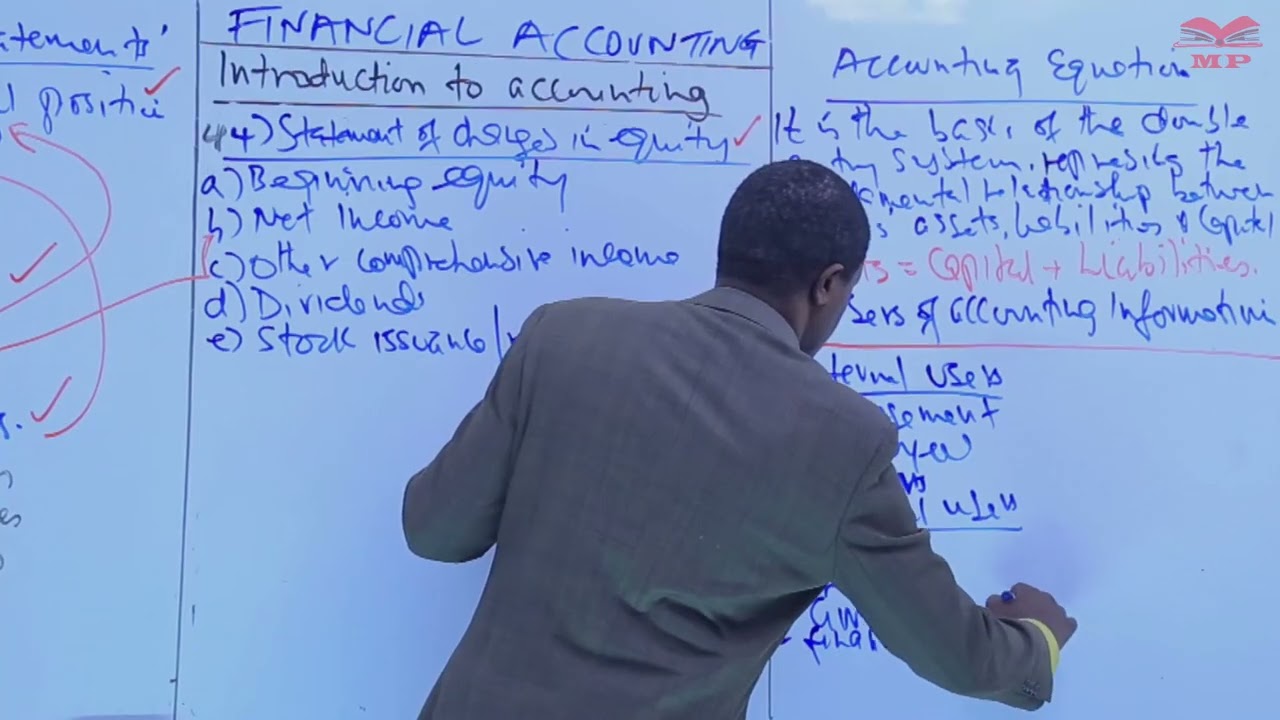 atements'
l positio
FINANCIAL ACCOUNTING
Introduction to accounting
4) Statement of changes in equity
a) Beginning equity
b) Net Income
c) Other comprehensive income
d) Dividends
e) Stock issuance/
Accounting Equation
It is the basis of the double
system, represing the
mental relationship between
assets, liabilities & Capital
= Capital + Liabilities.
sers of accounting Information
ternal users
gement
users
MP